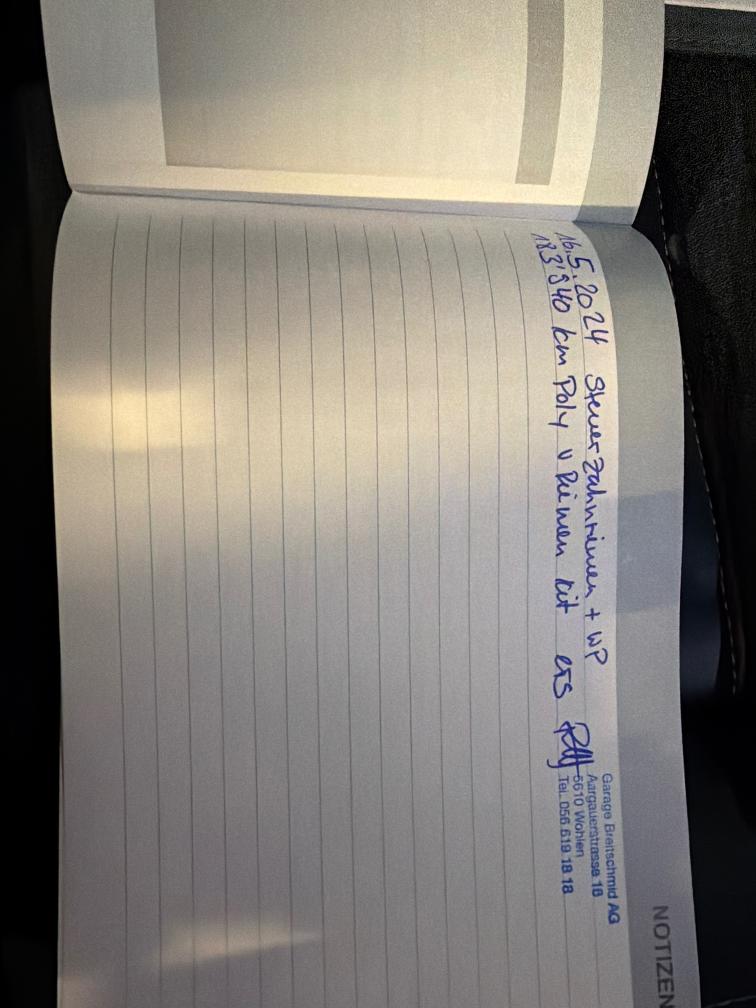 NOTIZEN
16.5.2024 Steuerzahnriemen + WP
183'840 km Poly V Riemen kit ers
Garage Breitschmid AG
Aargauerstrasse 16
5610 Wohlen
Tel. 056 619 18 18